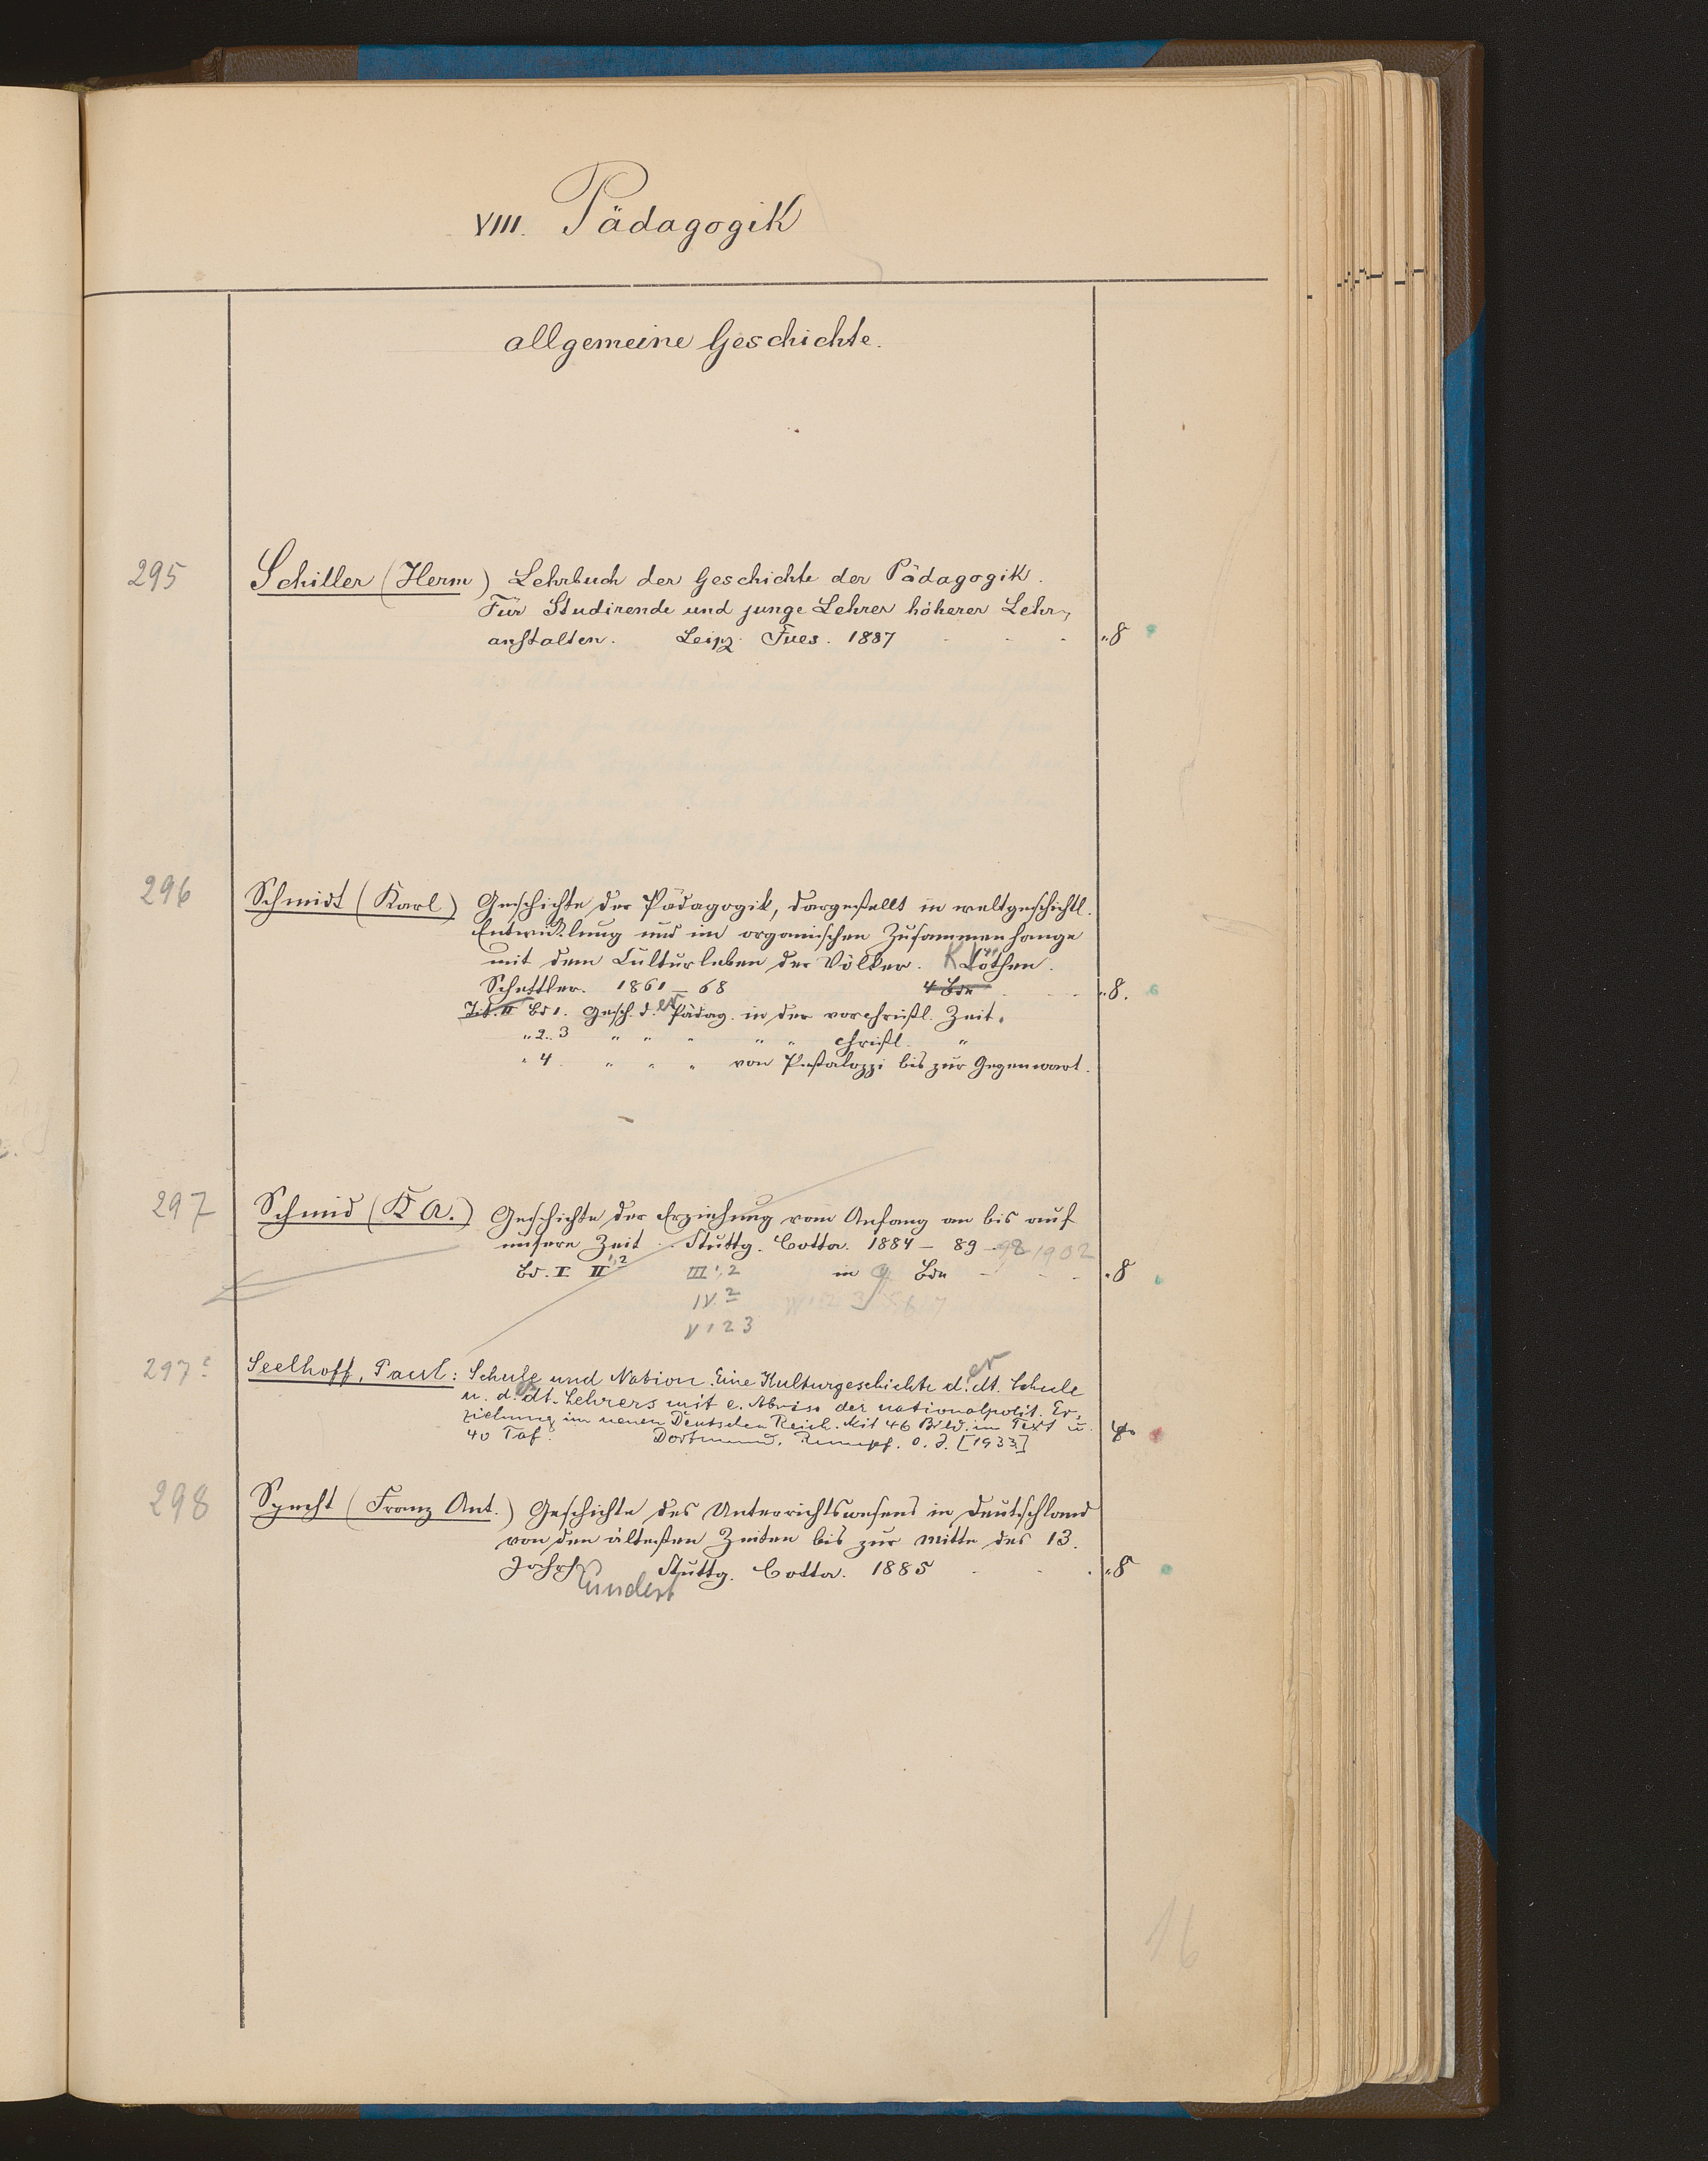 VIII. Pädagogik
allgemeine Geschichte.
295 Schiller (Herm) Lehrbuch der Geschichte der Pädagogik.
Für Studirende und junge Lehrer höherer Lehr-
anstalten. Leipz. Fues. 1887 „8
296 Schmidt (Karl) Geschichte der Pädagogik, dargestellt in weltgeschichtl.
Entwicklung und im organischen Zusammenhange
mit dem Culturleben der Völker. Köthen.
Schettler. 1861–68 4 Bde „8.
Tit. II Bd 1. Gesch. d. er Pädag. in der vorchristl. Zeit.
„ 2. 3 „ „ „ „ „ christl. „
„ 4. „ „ „ von Pestalozzi bis zur Gegenwart.
297 Schmid (K A.) Geschichte der Erziehung vom Anfang an bis auf
unsere Zeit. Stuttg. Cotta. 1884–89 –98 1902
Bd. I II 1,2 III 1,2 in Bdn „8
IV 2
V 1 2 3
297 a Seelhoff, Paul: Schule und Nation. Eine Kulturgeschichte d. er dt. Schule
u. d. es dt. Lehrers mit e. Abriss der nationalpolit. Er-
ziehung im neuen Deutschen Reich. Mit 46 Bild. im Text u.
40 Taf. Dortmund, Rumpf. o. J. [1933]
298 Specht (Franz Ant.) Geschichte des Unterrichtswesens in Deutschland
von den ältesten Zeiten bis zur Mitte des 13.
Jahrh Stuttg. Cotta. 1885 „8
undert
16